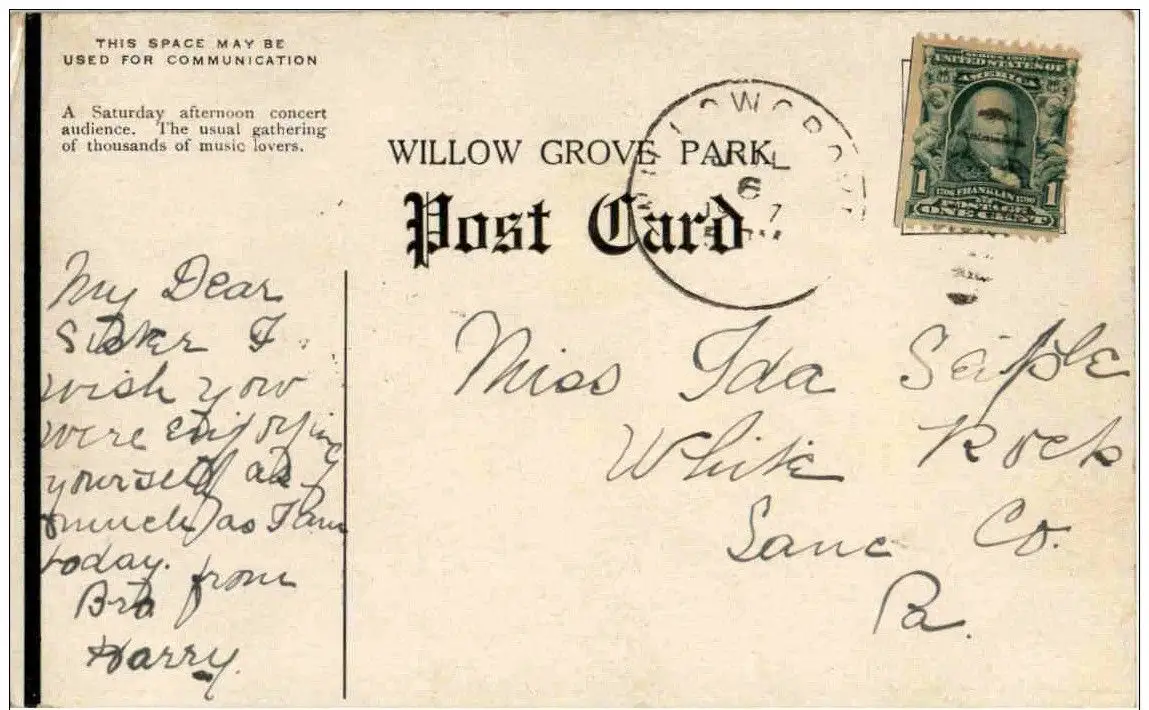 THIS SPACE MAY BE
USED FOR COMMUNICATION
A Saturday afternoon concert
audience. The usual gathering
of thousands of music lovers.
WILLOW GROVE PARK
Post Card
JUL
6
7
SERIES 1902
UNITED STATES OF
AMERICA
1 1
1706 FRANKLIN 1790
POSTAGE
ONE CENT
My Dear
Sister I
wish you
were enjoying
yourself as
much as I am
today.
from
Bro
Harry.
Miss Ida
White Rock
Lanc Co.
Pa.